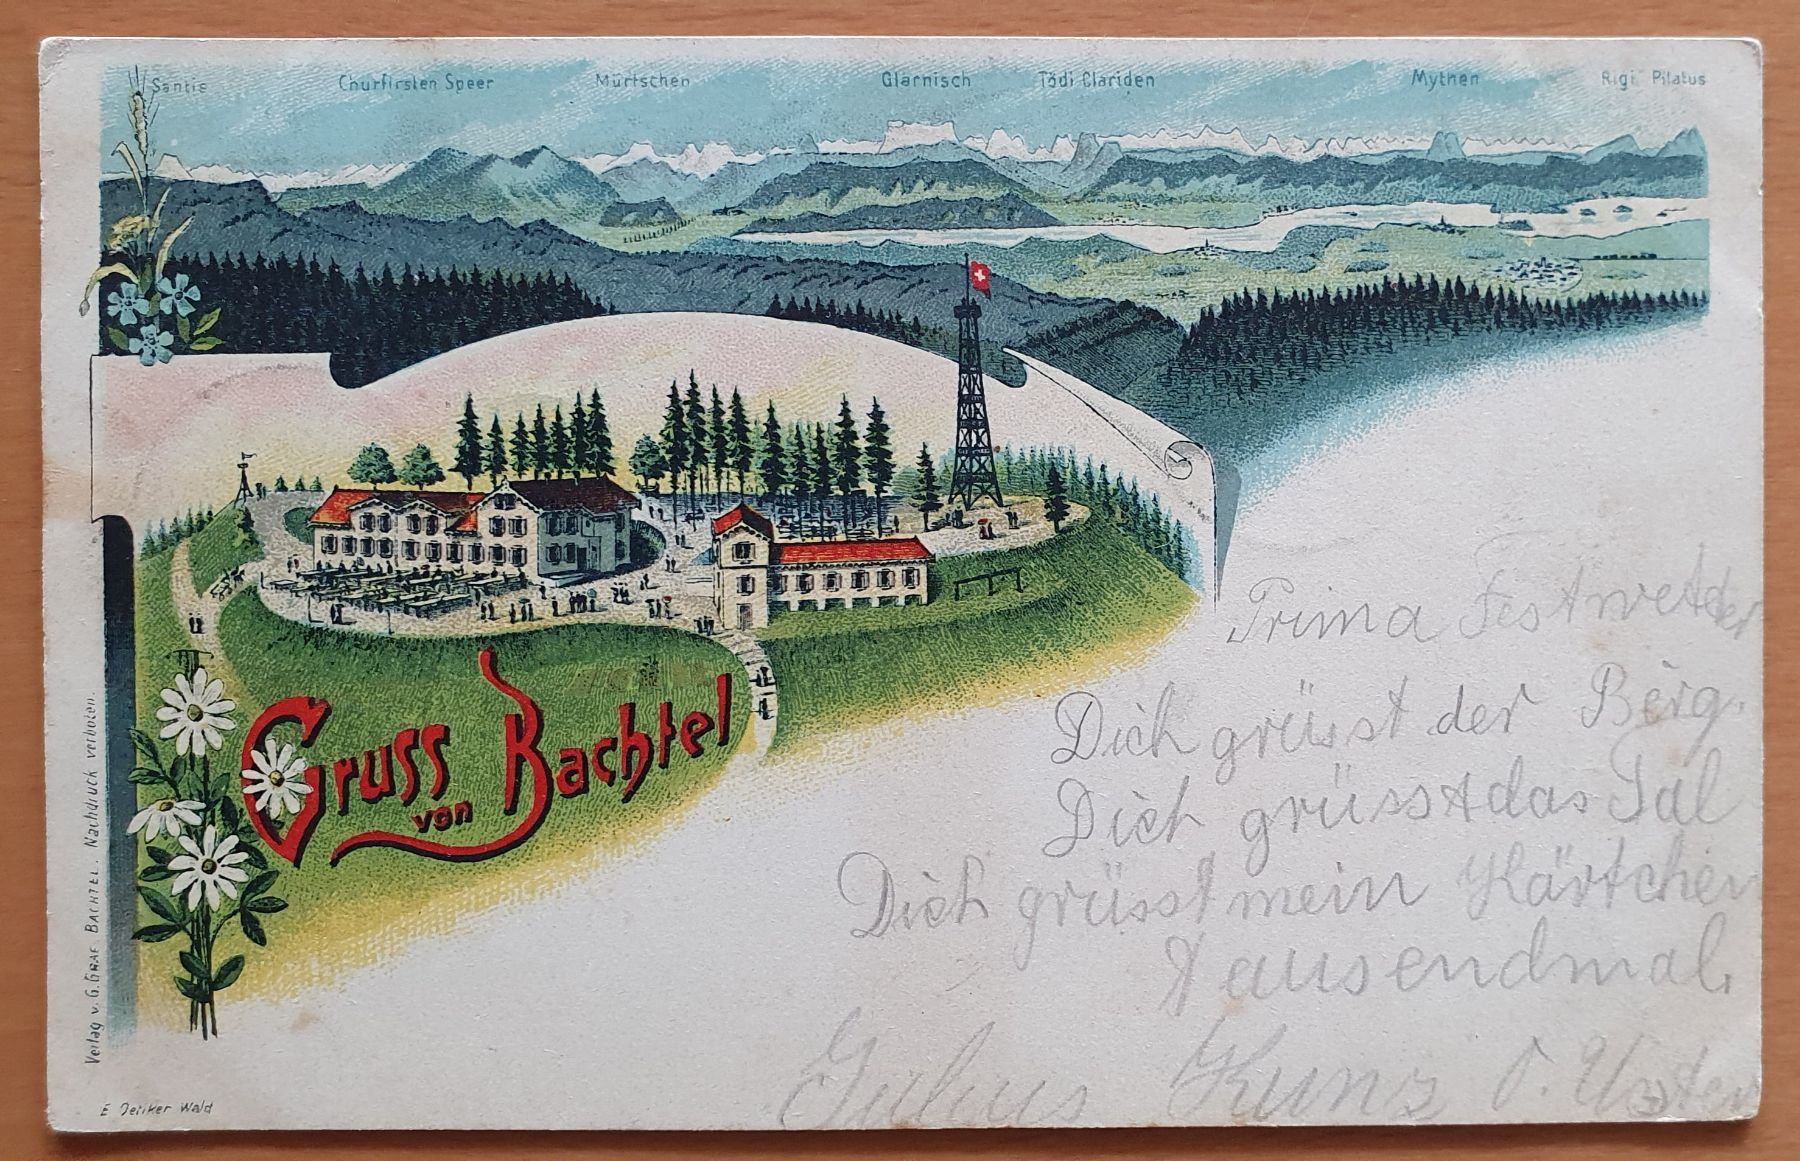 Säntis Churfirsten Speer Mürtschen Glärnisch Tödi Clariden Mythen Rigi Pilatus
Gruss
von Bachtel
Verlag v. G. Graf Bachtel. Nachdruck verboten.
E Oetiker Wald
Prima Festwetter
Dich grüsst der Berg.
Dich grüsst das Tal
Dich grüsst mein Kärtchen
Tausendmal.
Julius Kunz v. Uster